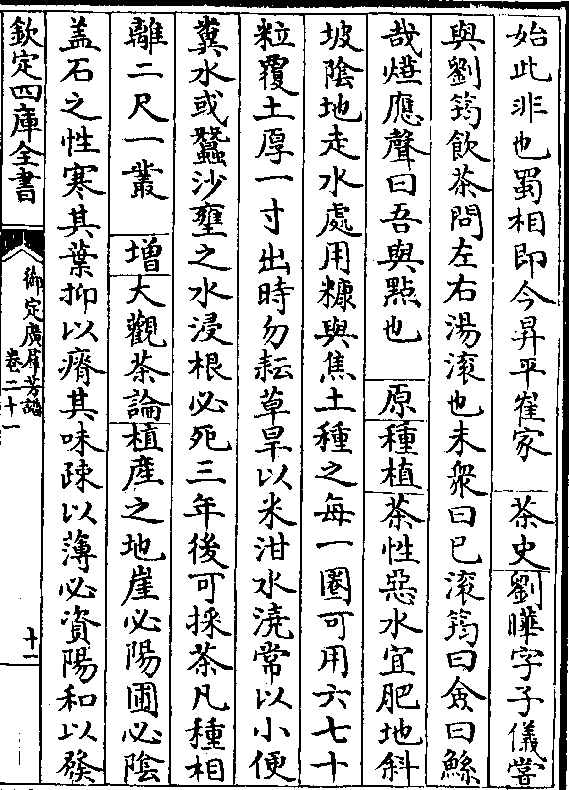 始此非也蜀相即今昇平崔家　茶史劉曄字子儀嘗
與劉筠飲茶問左右湯滾也未衆曰已滾筠曰僉曰鯀
哉燁應聲曰吾與點也　原種植茶性惡水宜肥地斜
坡陰地走水處用糠與焦土種之每一圈可用六七十
粒覆土厚一寸出時勿耘草旱以米泔水澆常以小便
糞水或蠶沙壅之水浸根必死三年後可採茶凡種相
離二尺一叢　增大觀茶論植產之地崖必陽圃必陰
盖石之性寒其葉抑以瘠其味疎以薄必資陽和以發
欽定四庫全書
御定廣羣芳譜
卷二十一
十一